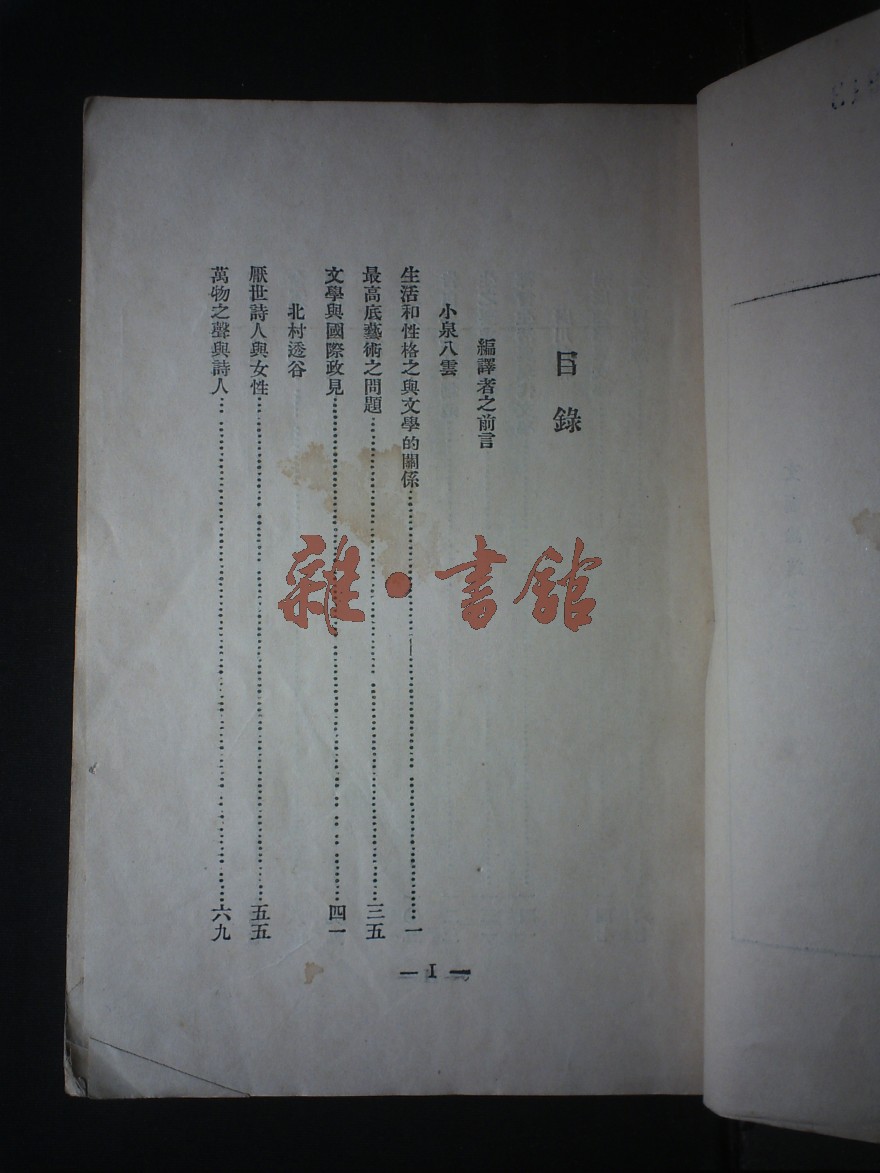 目錄
編譯者之前言
小泉八雲
生活和性格之與文學的關係……一
最高底藝術之問題……三五
文學與國際政見……四一
北村透谷
厭世詩人與女性……五五
萬物之聲與詩人……六九
— I —
雜·書館